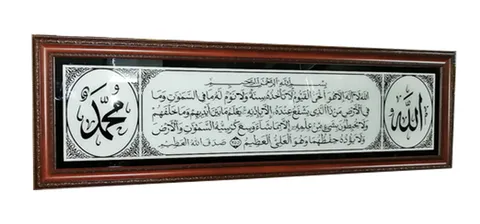 الله
بسم الله الرحمن الرحيم
الله لا إله إلا هو الحي القيوم لا تأخذه سنة ولا نوم له ما في السموات وما
في الأرض من ذا الذي يشفع عنده إلا بإذنه يعلم ما بين أيديهم وما خلفهم
ولا يحيطون بشيء من علمه إلا بما شاء وسع كرسيه السموات والأرض
ولا يؤده حفظهما وهو العلي العظيم صدق الله العظيم
محمد